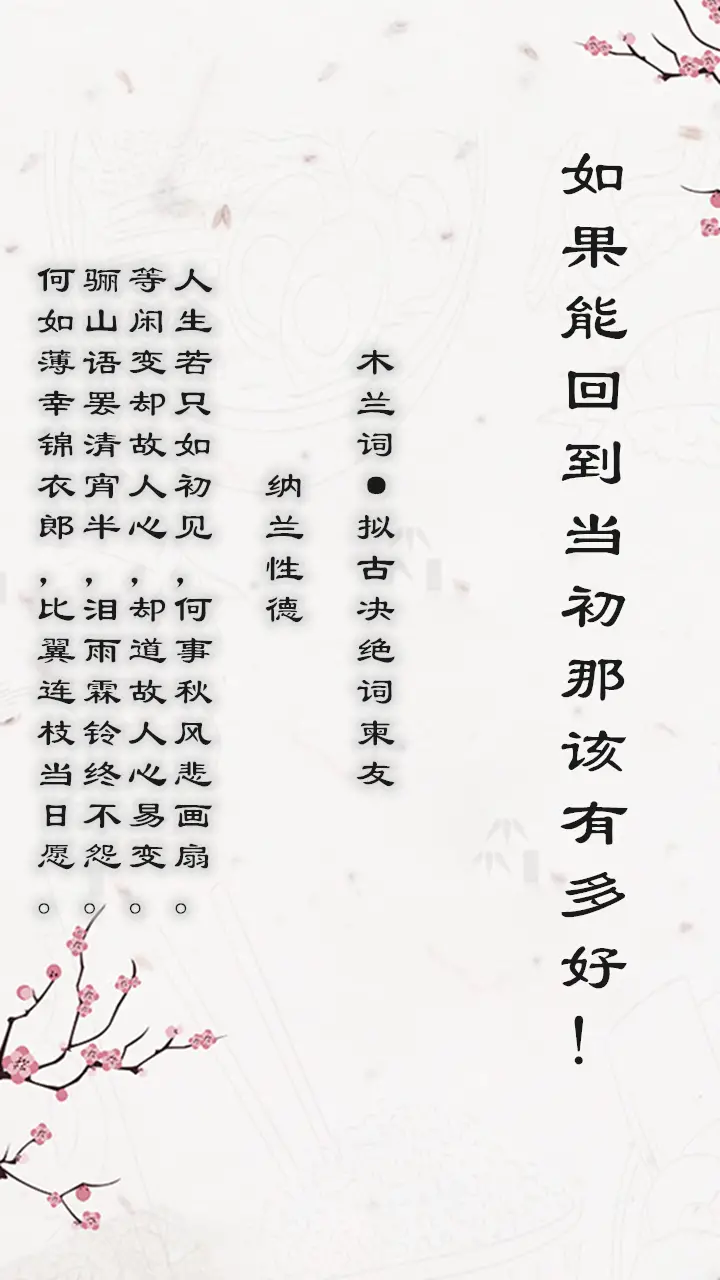 如果能回到当初那该有多好！
木兰词●拟古决绝词柬友
纳兰性德
人生若只如初见，何事秋风悲画扇。
等闲变却故人心，却道故人心易变。
骊山语罢清宵半，泪雨霖铃终不怨。
何如薄幸锦衣郎，比翼连枝当日愿。